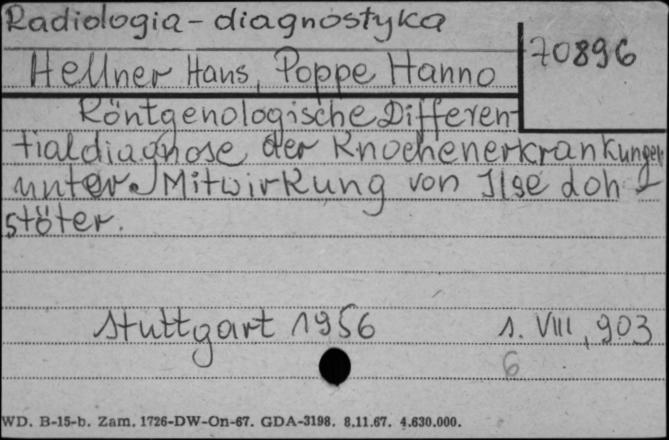 Radiologia - diagnostyka
70896
Hellner Hans, Poppe Hanno
Röntgenologische Differen-
tialdiagnose der Knochenerkrankungen
unter Mitwirkung von Ilse doh-
stöter.
Stuttgart 1956 s. VIII, 903
6
WD. B-15-b. Zam. 1726-DW-On-67. GDA-3198. 8.11.67. 4.630.000.